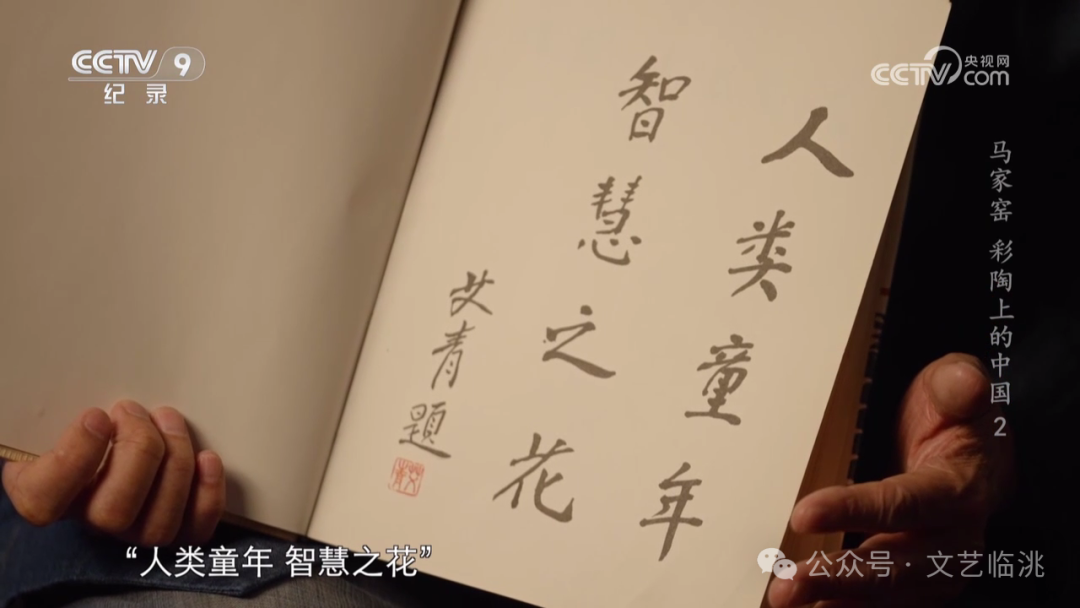 CCTV 9
纪录
CCTV 央视网
com
人类童年
智慧之花
艾青题
马家窑 彩陶上的中国 2
“人类童年 智慧之花”
公众号·文艺临洮